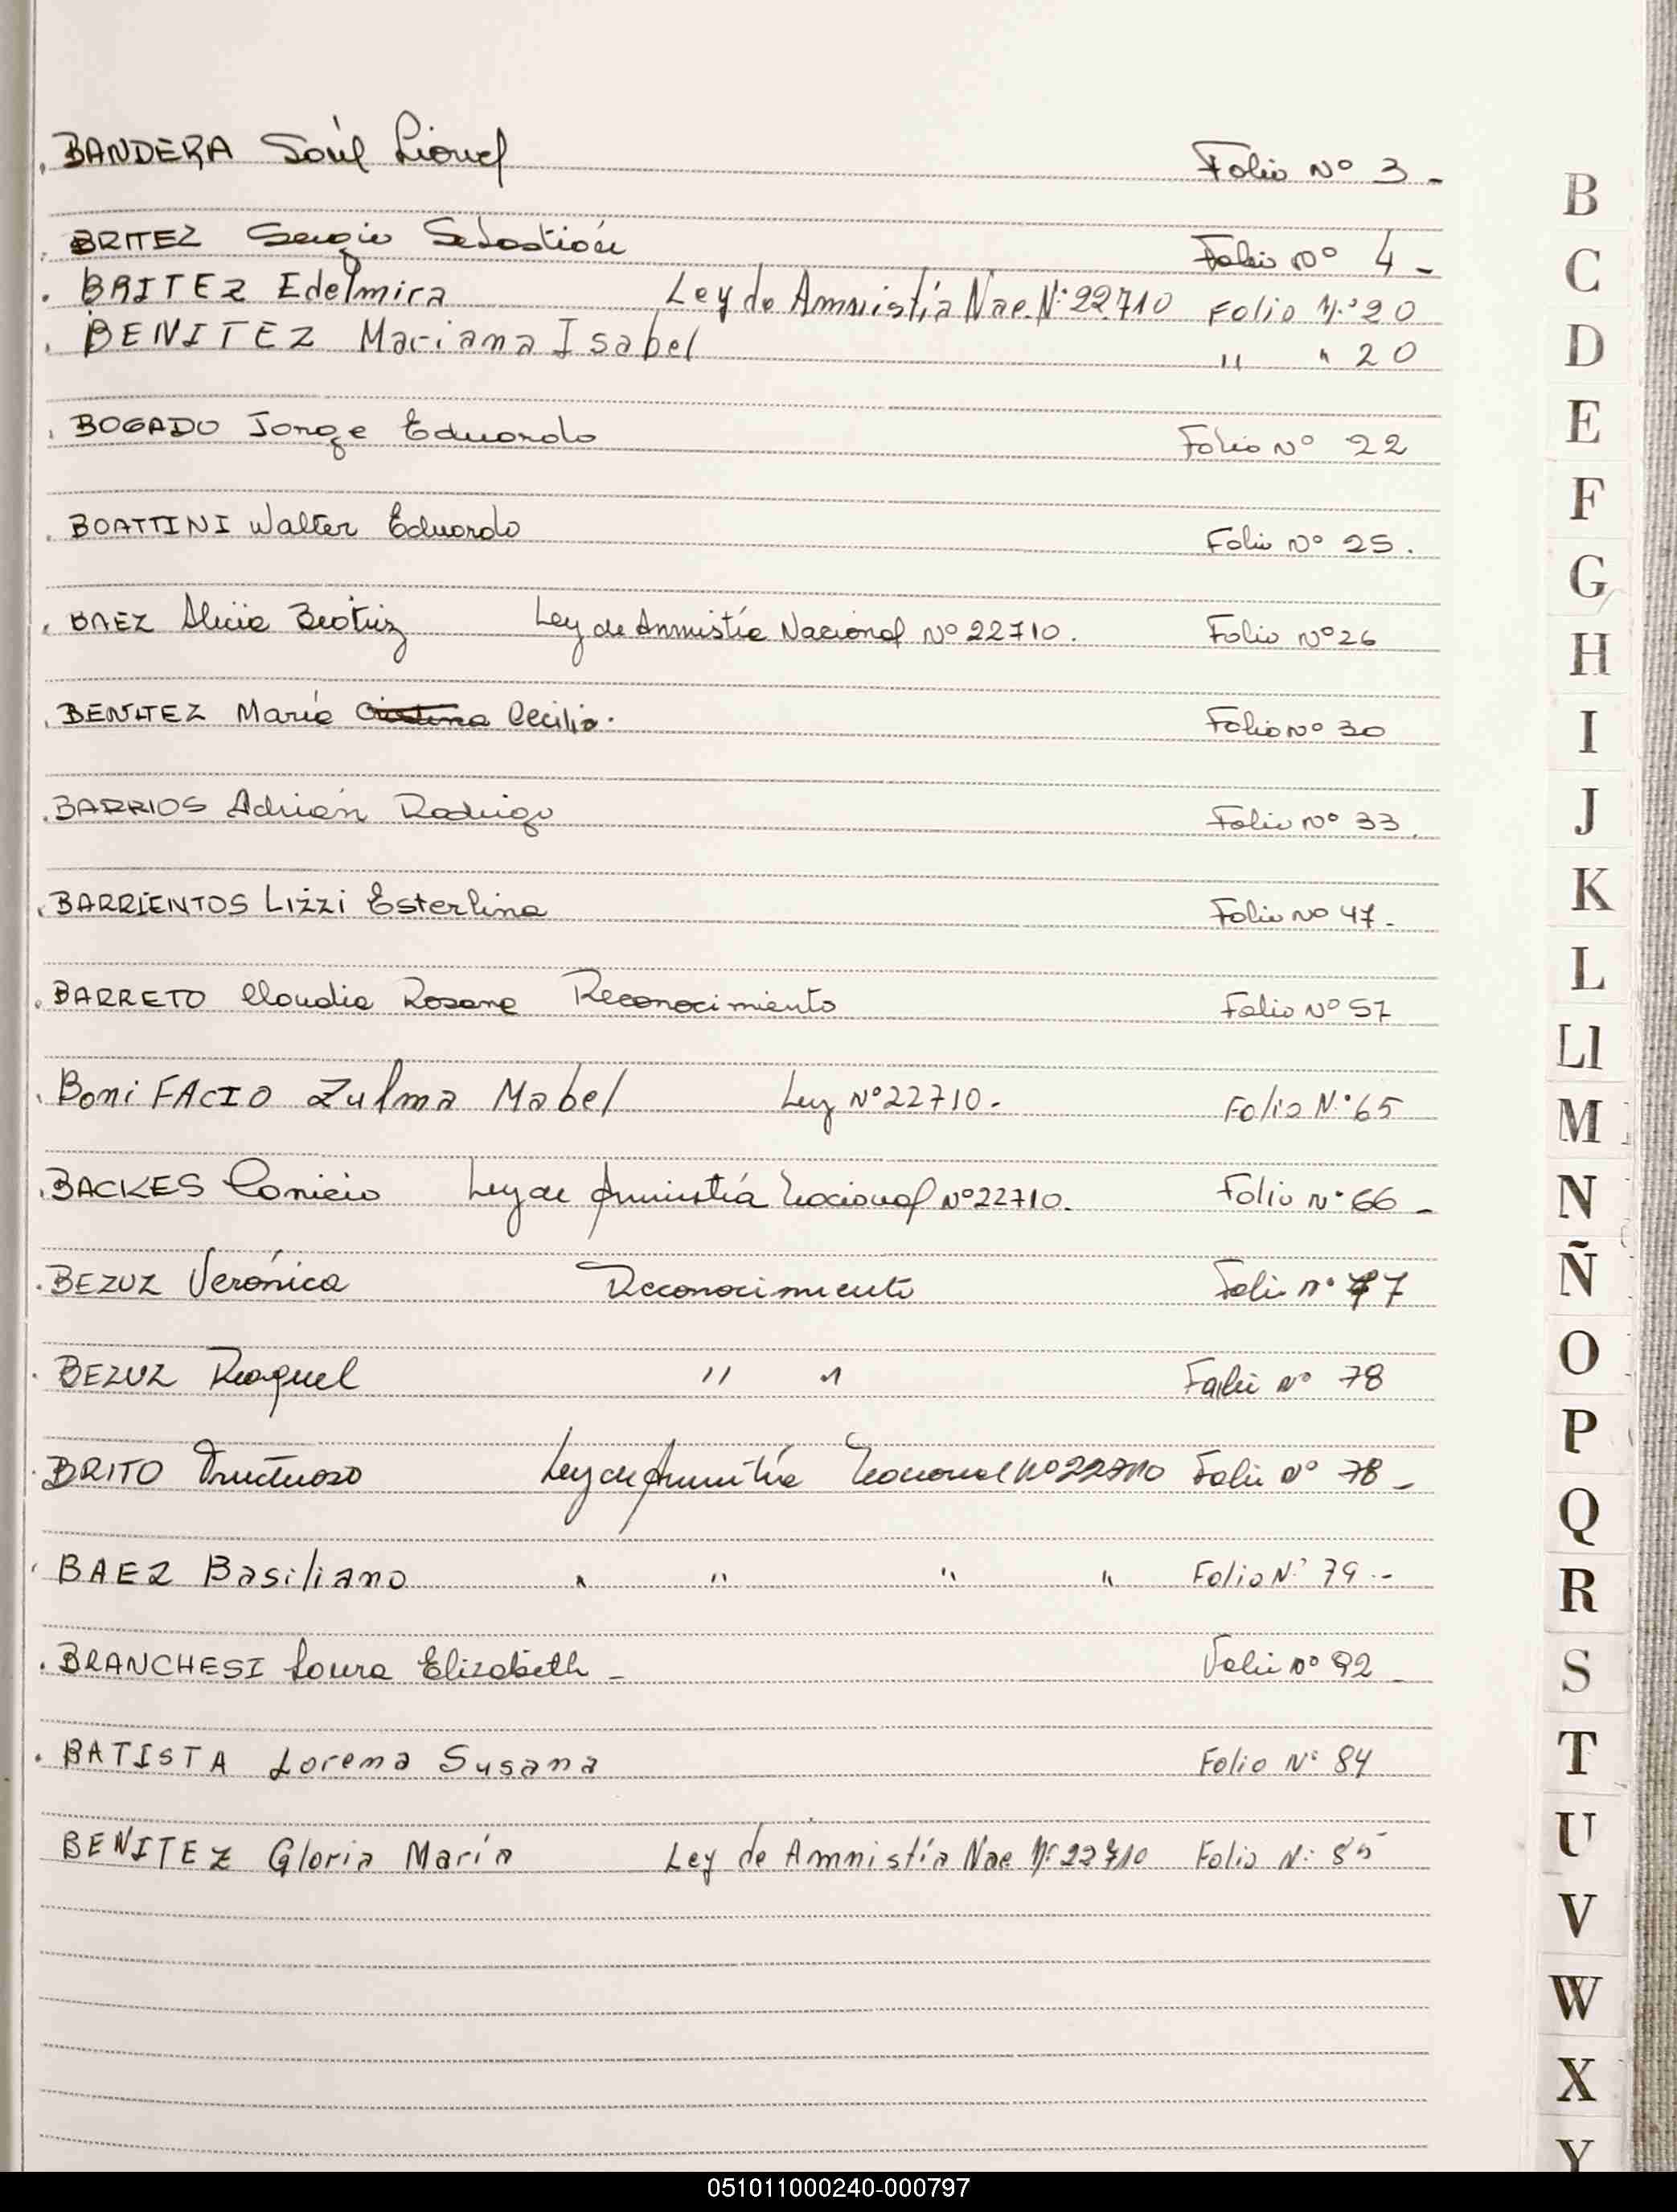 BANDERA Saúl Lionel Folio Nº 3 -
BRITEZ Sergio Sebastián Folio Nº 4 -
BRITEZ Edelmira Ley de Amnistía Nac. Nº 22710 Folio Nº 20
BENITEZ Mariana Isabel " " 20
BOGADO Jorge Eduardo Folio Nº 22
BOATTINI Walter Eduardo Folio Nº 25.
BAEZ Alicia Beatriz Ley de Amnistía Nacional Nº 22710. Folio Nº 26
BENITEZ María Cristina Cecilia. Folio Nº 30
BARRIOS Adrián Rodrigo Folio Nº 33.
BARRIENTOS Lizzi Esterlina Folio Nº 47.
BARRETO Claudia Rosana Reconocimiento Folio Nº 57
BoniFACIO Zulma Mabel Ley Nº 22710.- Folio Nº 65
BACKES Ley de Amnistía Nacional Nº 22710. Folio Nº 66 -
BEZUZ Verónica Reconocimiento Folio Nº 77
BEZUZ Raquel " " Folio Nº 78
BRITO Fructuoso Ley de Amnistía Nacional Nº 22710 Folio Nº 78 -
BAEZ Basiliano " " " " Folio Nº 79.-
BRANCHESI Laura Elizabeth - Folio Nº
BATISTA Lorena Susana Folio Nº 84
BENITEZ Gloria María Ley de Amnistía Nac Nº 22710 Folio Nº 85
B
C
D
E
F
G
H
I
J
K
L
Ll
M
N
Ñ
O
P
Q
R
S
T
U
V
W
X
Y
051011000240-000797